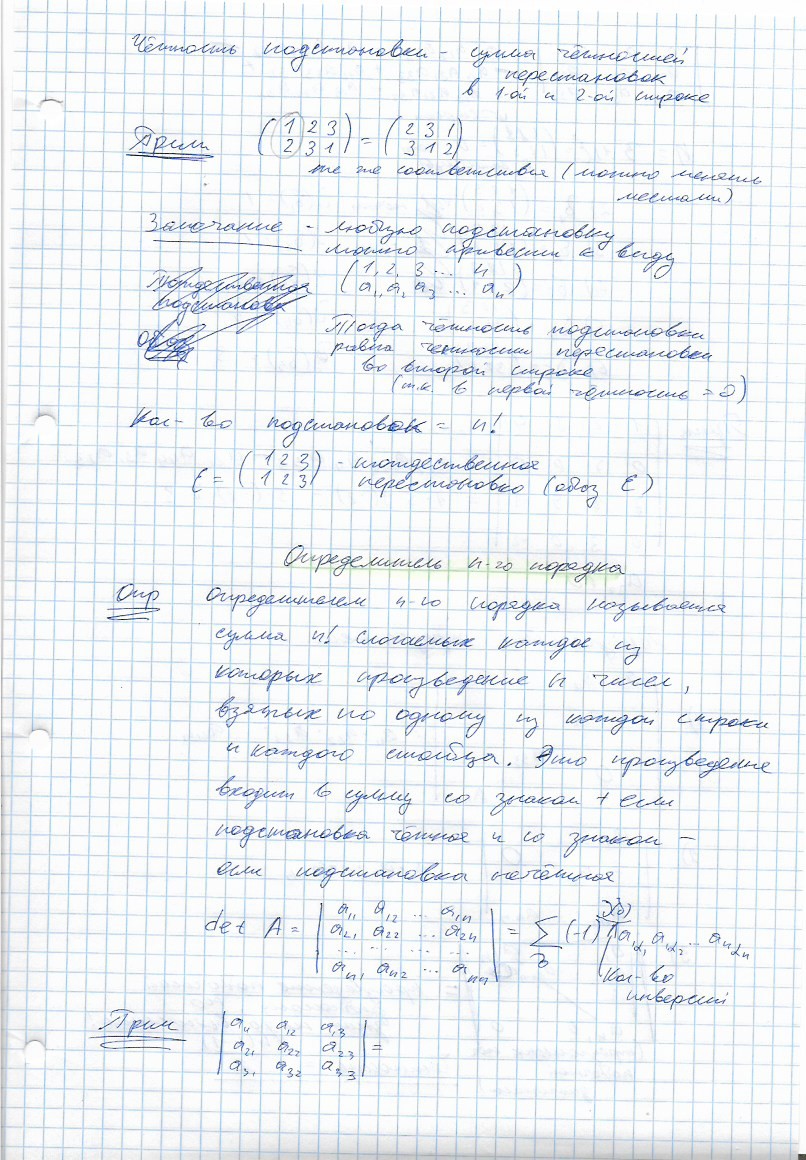 Чётность подстановки - сумма чётностей
перестановок
в 1-ой и 2-ой строке
Прим (1 2 3 / 2 3 1) = (2 3 1 / 3 1 2)
те же соответствия (можно менять
местами)
Замечание - любую подстановку
можно привести к виду
(1, 2, 3 ... n / a₁, a, a₃ ... aₙ)
Тождественная
подстановка
Тогда чётность подстановки
равна чётности перестановки
во второй строке
(т.к. в первой чётность = 0)
Кол-во подстановок = n!
ε = (1 2 3 / 1 2 3) - тождественная
перестановка (обоз ε)
Определитель n-го порядка
Опр Определителем n-го порядка называется
сумма n! слогаемых каждое из
которых произведение n чисел,
взятых по одному из каждой строки
и каждого столбца. Это произведение
входит в сумму со знаком + если
подстановка чётная и со знаком -
если подстановка нечётная
det A = |a₁₁ a₁₂ ... a₁ₙ / a₂₁ a₂₂ ... a₂ₙ / ... / aₙ₁ aₙ₂ ... aₙₙ| = Σ (-1) a₁α₁ a₁α₂ ... aₙαₙ
Кол-во
инверсий
Прим |a₁₁ a₁₂ a₁₃ / a₂₁ a₂₂ a₂₃ / a₃₁ a₃₂ a₃₃| =